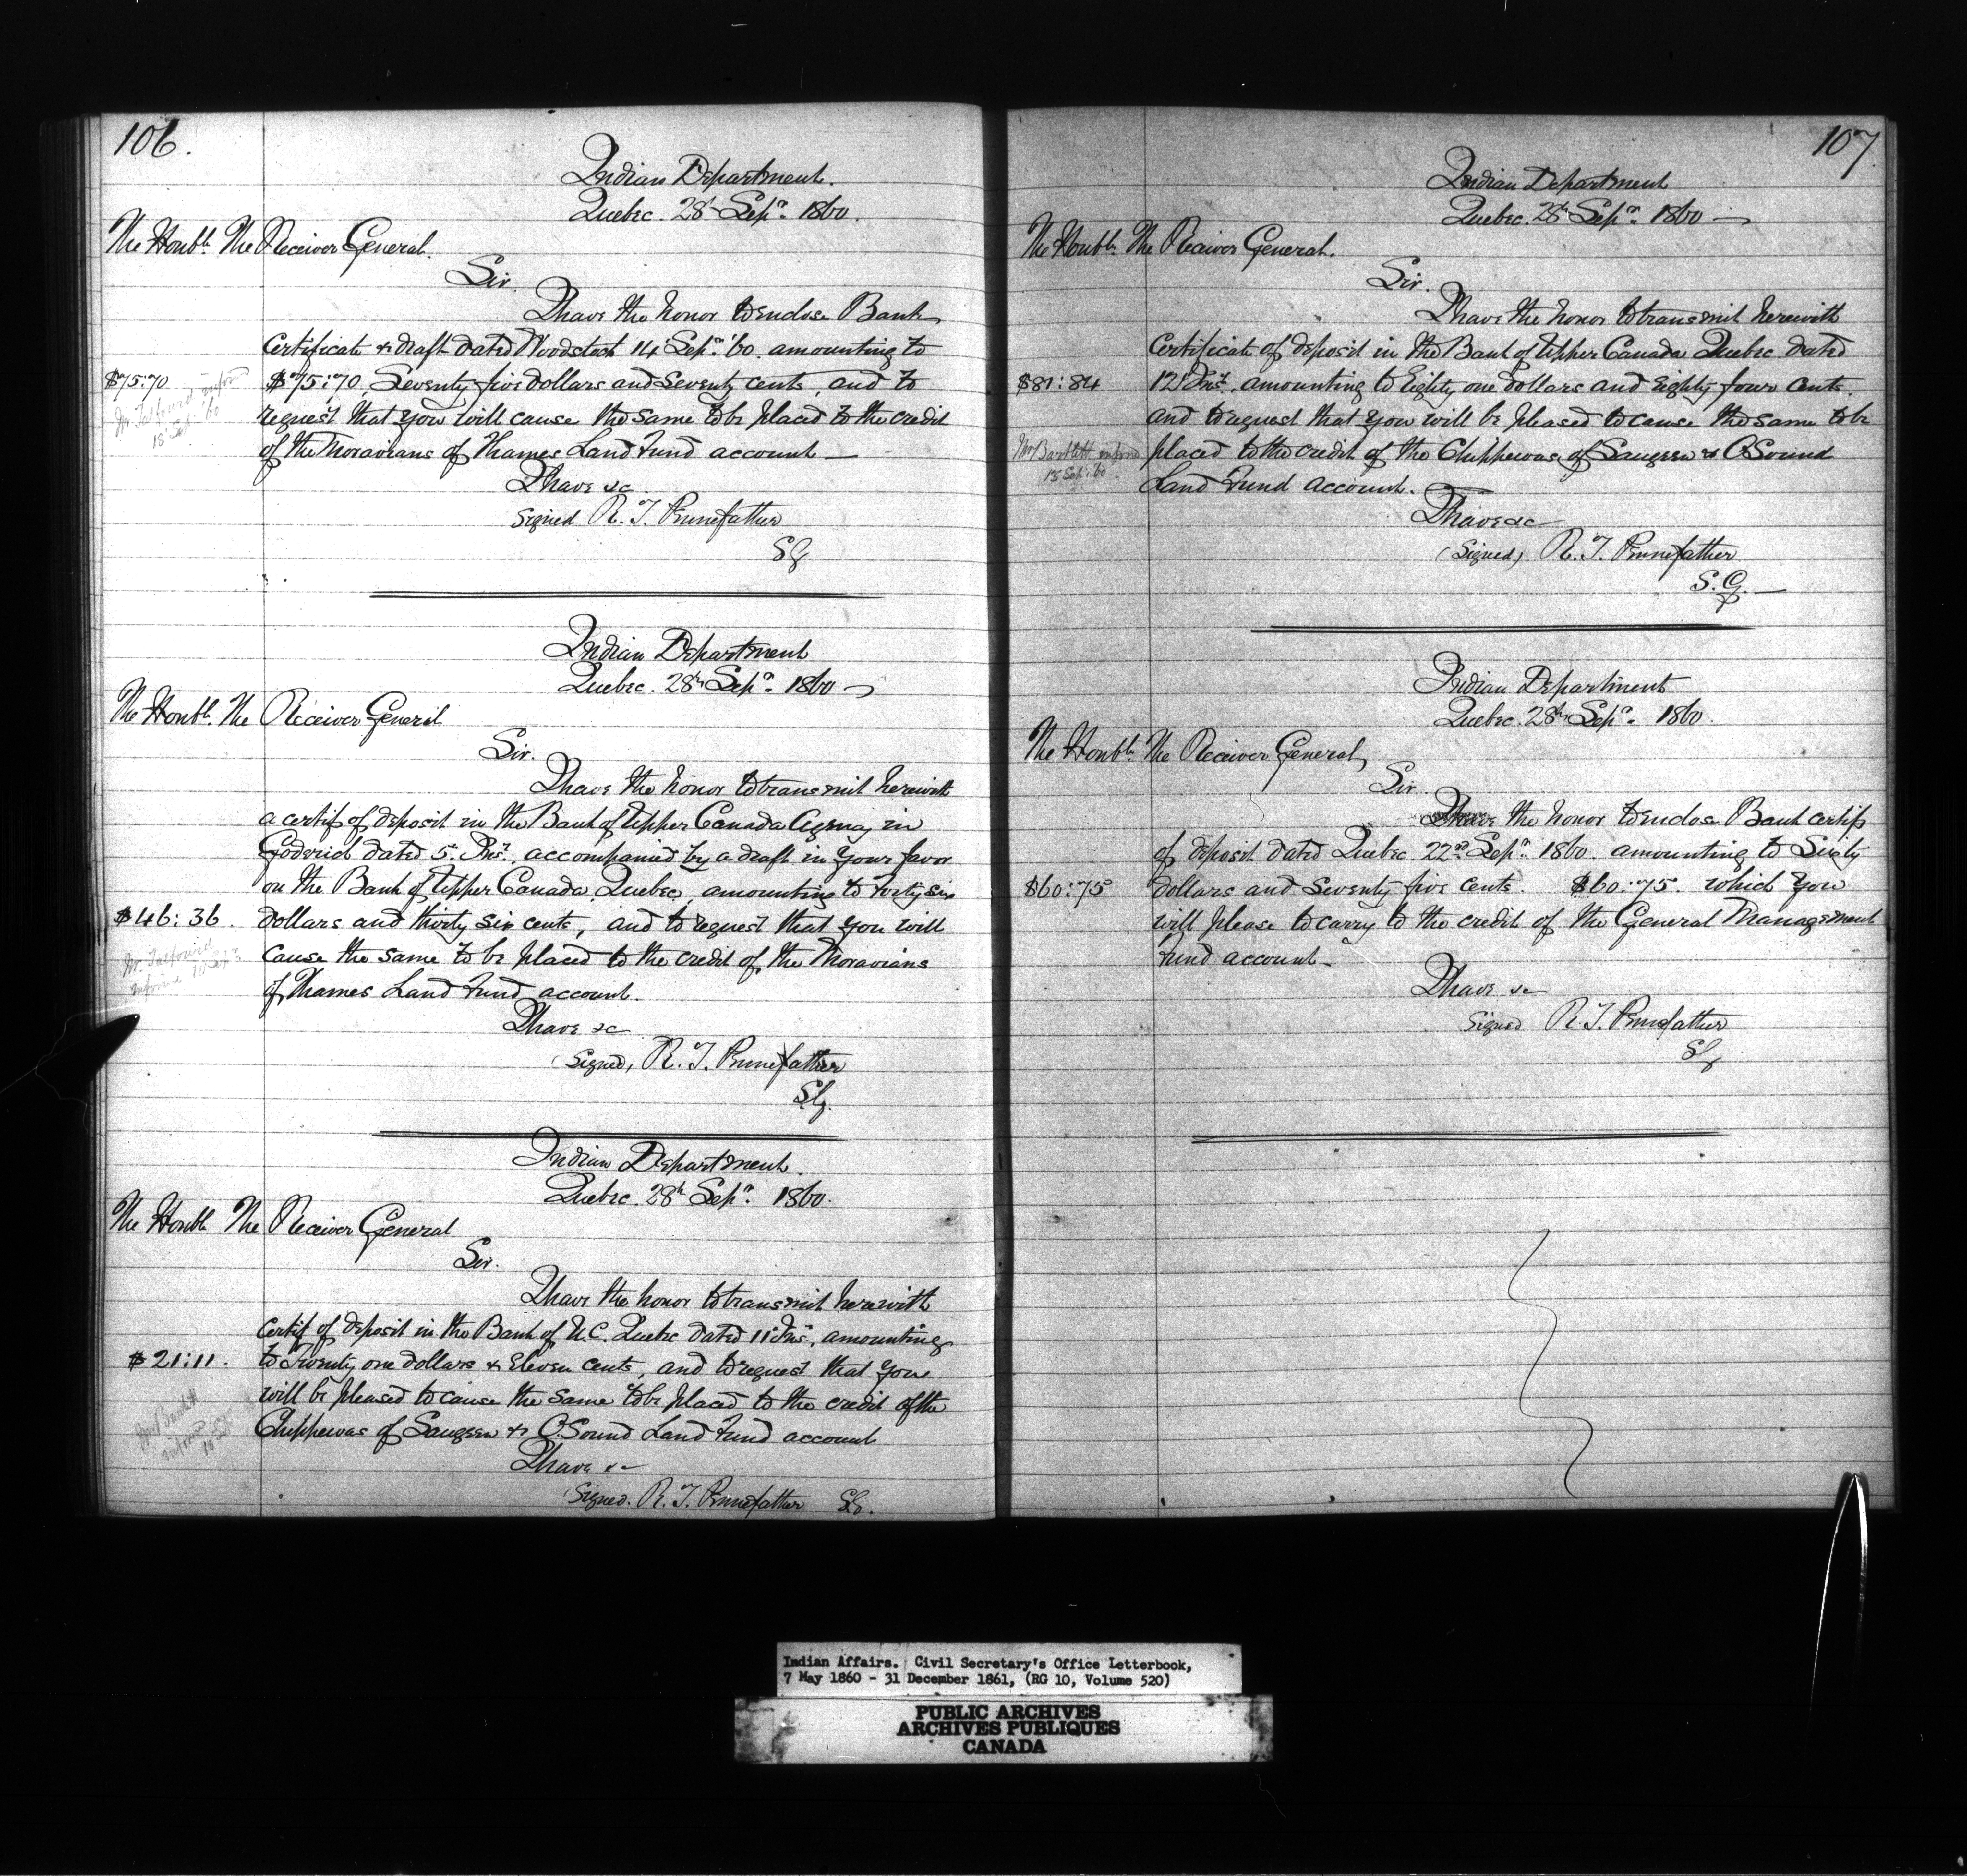 106.
Indian Department.
Quebec. 28 Sepr. 1860.
The Honble. The Receiver General.
Sir.
I have the honor to enclose Bank
Certificate & draft dated Woodstock 14 Sepr. '60. amounting to
$75:70 $75:70 Seventy five dollars and seventy cents, and to
Mr. Talfourd informd
18 Sep: 60
request that you will cause the same to be placed to the credit
of the Moravians of Thames Land Fund account —
I have &c
Signed R. T. Pennefather
SG
Indian Department
Quebec. 28th Sepr. 1860 —
The Honble. The Receiver General
Sir.
I have the honor to transmit herewith
a certif of deposit in the Bank of Upper Canada Agency in
Goderich dated 5. Inst., accompanied by a draft in your favor
on the Bank of Upper Canada, Quebec, amounting to Forty six
$46:36. dollars and thirty six cents, and to request that you will
Mr. Talfourd
informed
cause the same to be placed to the credit of the Moravians
of Thames Land Fund account.
I have &c
(Signed, R. T. Pennefather
SG.
Indian Department.
Quebec. 28th Sepr. 1860.
The Honble The Receiver General
Sir.
I have the honor to transmit herewith
Certif of deposit in the Bank of U.C. Quebec dated 11 Inst., amounting
$21:11. to Twenty one dollars & Eleven cents, and to request that you
Mr Bartlett
informd
will be pleased to cause the same to be placed to the credit of the
Chippewas of Saugeen & O. Sound Land Fund account
I have &c
(Signed. R. T. Pennefather SG.
107.
Indian Department
Quebec. 28th Sepr. 1860 —
The Honble. The Receiver General.
Sir.
I have the honor to transmit herewith
Certificate of deposit in the Bank of Upper Canada Quebec dated
$81:84 12 Inst. amounting to Eighty one dollars and Eighty four Cents.
and to request that you will be pleased to cause the same to be
Mr Bartlett informd
18 Sep: 60.
placed to the credit of the Chippewas of Saugeen & O. Sound
Land Fund account.
I have &c
(Signed) R. T. Pennefather
S.G. —
Indian Department
Quebec. 28th Sepr. 1860.
The Honble. The Receiver General,
Sir.
I have the honor to enclose Bank certif
of deposit dated Quebec 22nd Sepr. 1860. amounting to Sixty
$60:75 dollars and seventy five cents. $60:75. which you
will please to carry to the credit of the General Management
Fund account —
I have &c
Signed R. T. Pennefather
SG
Indian Affairs. Civil Secretary's Office Letterbook,
7 May 1860 - 31 December 1861, (RG 10, Volume 520)
PUBLIC ARCHIVES
ARCHIVES PUBLIQUES
CANADA